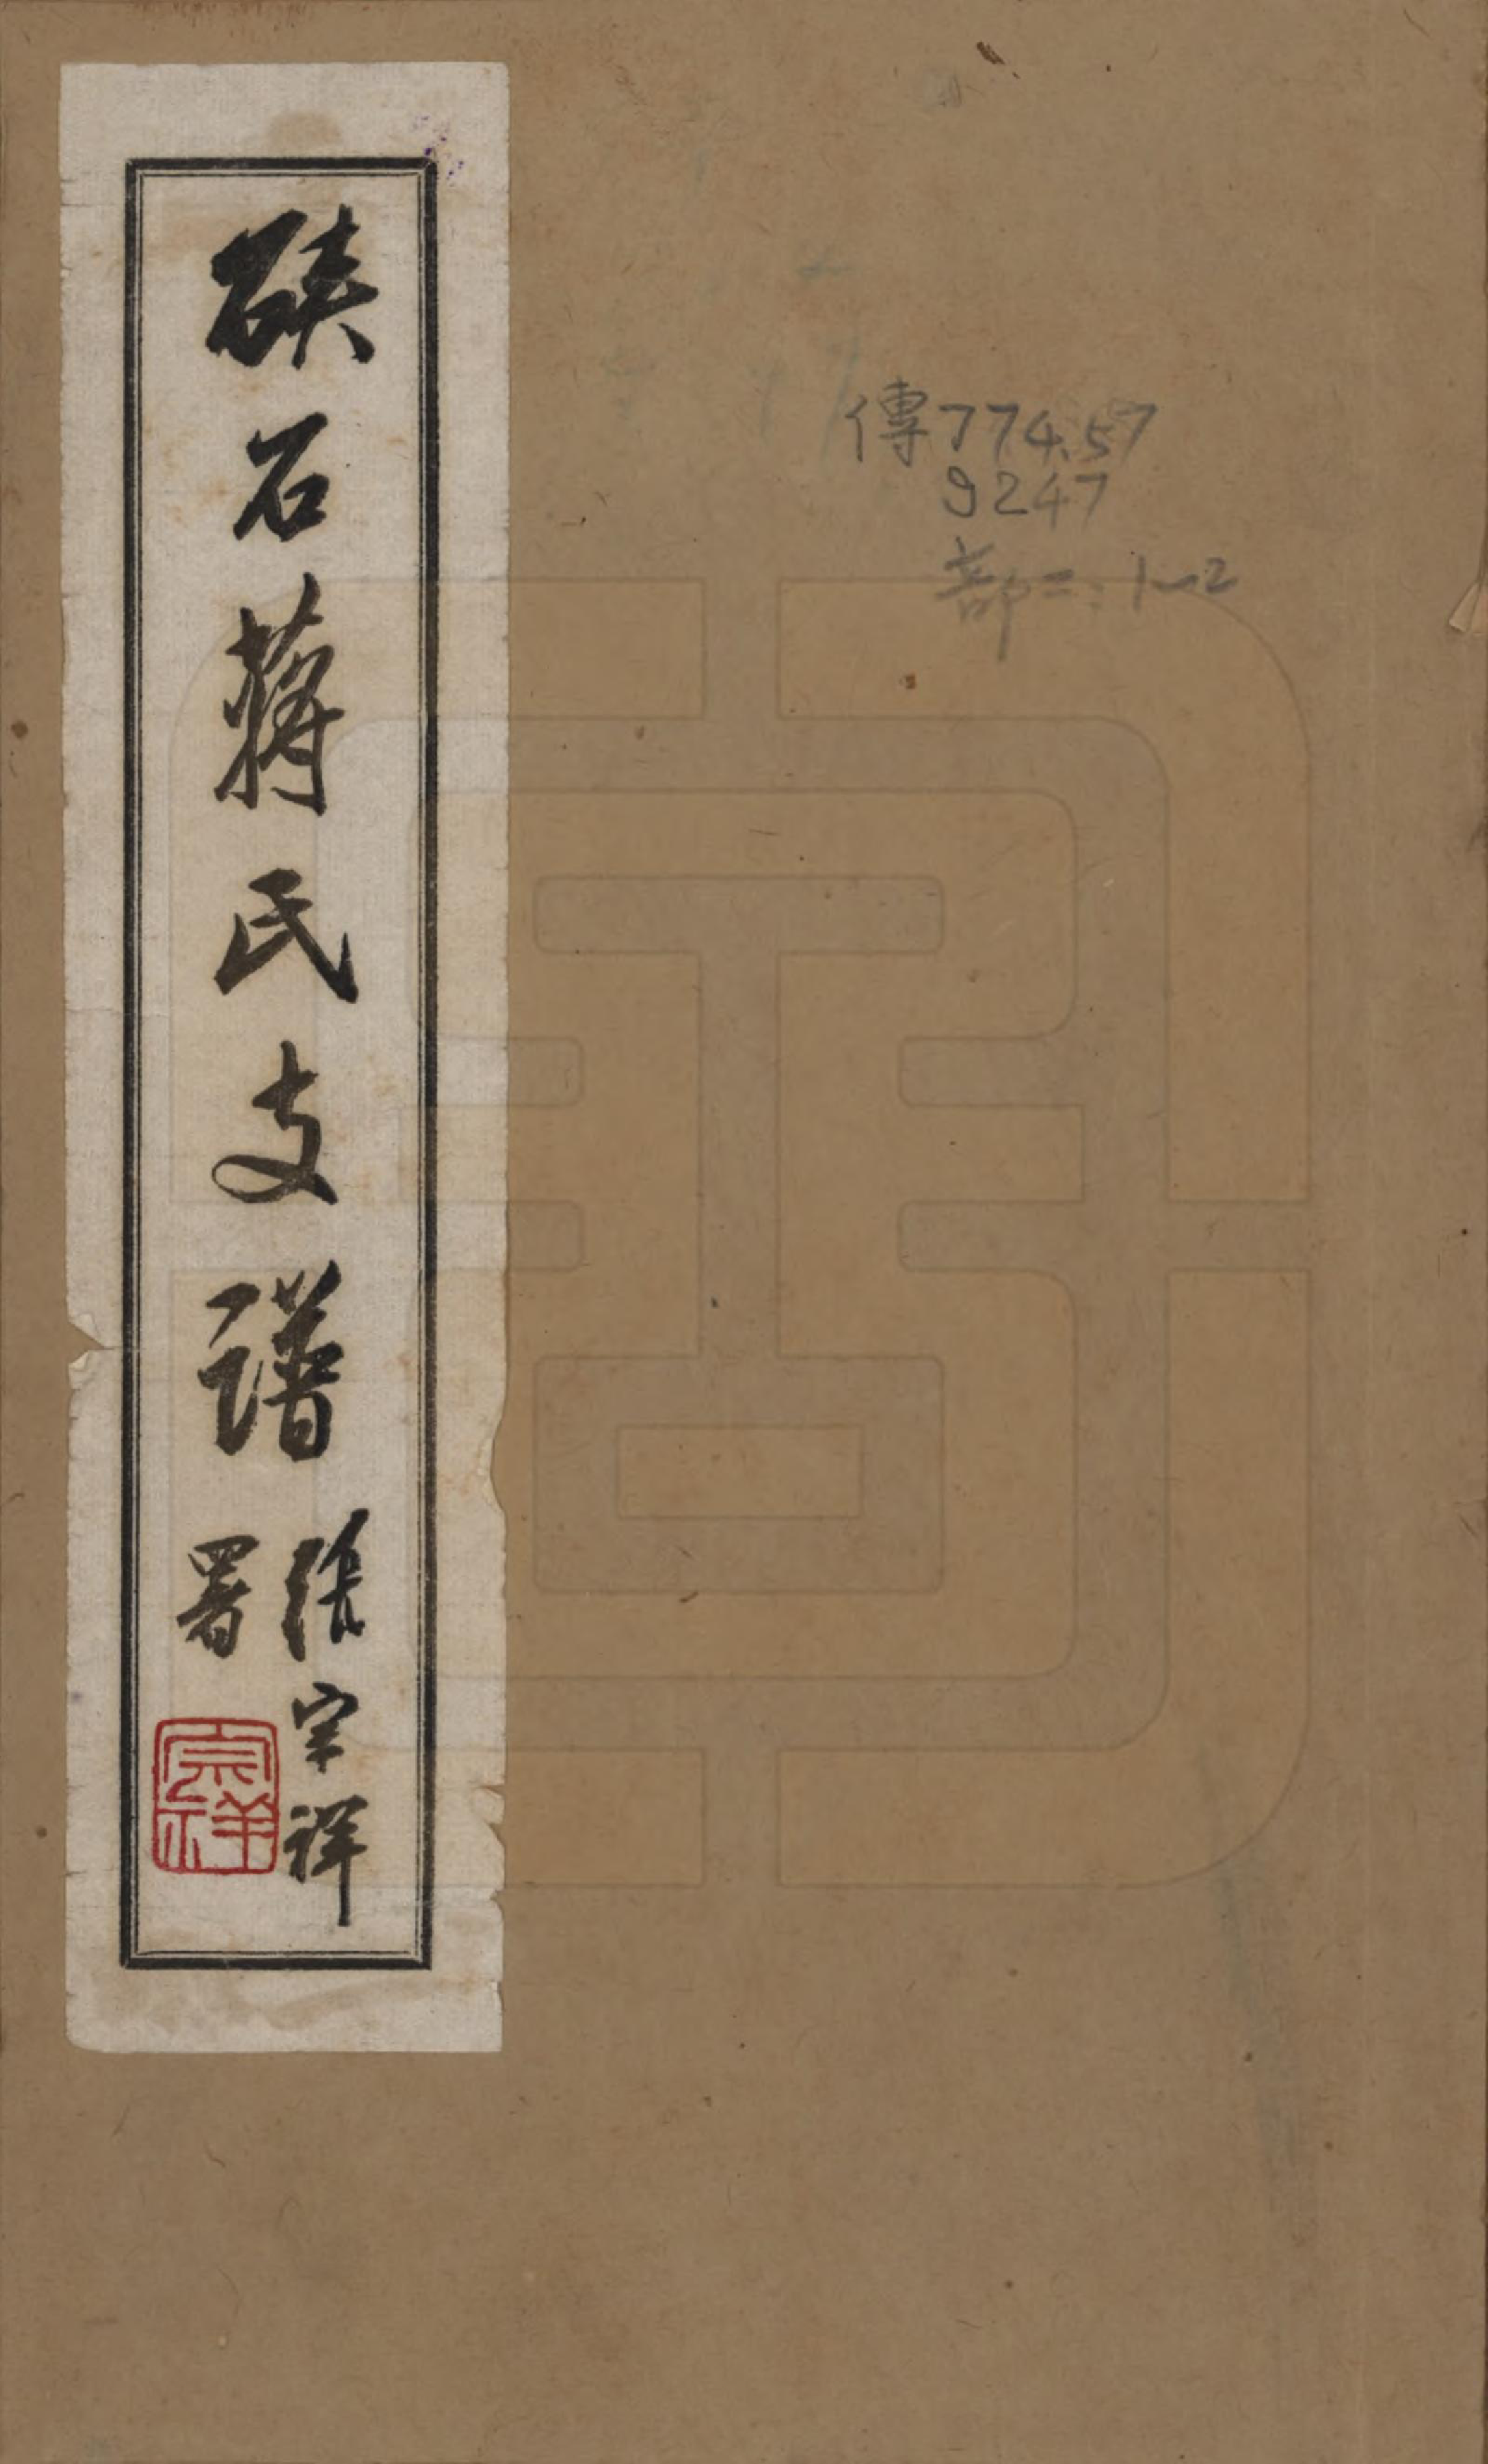 硤石蔣氏支譜
張宗祥
署
宗祥
傳774.57
9247
部二:1~2